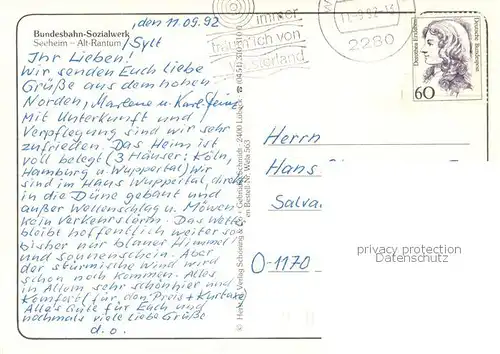 Bundesbahn-Sozialwerk
Seeheim – Alt-Rantum
, den 11.09.92
/Sylt
Ihr Lieben!
Wir senden Euch liebe
Grüße aus dem hohen
Norden, Marlene u. Karl-Heinz
Mit Unterkunft und
Verpflegung sind wir sehr
zufrieden. Das Heim ist
voll belegt (3 Häuser: Köln,
Hamburg u. Wuppertal) Wir
sind im Haus Wuppertal, direkt
in die Düne gebaut und
außer Wellenschlag u. Möwen
kein Verkehrslärm. Das Wetter
bleibt hoffentlich weiter so
bisher nur blauer Himmel
und Sonnenschein. Aber
der stürmische Wind wird
schon noch kommen. Alles
in Allem sehr schön hier und
Komfort (für den Preis + Kurtaxe)
Alles Gute für Euch und
nochmals viele liebe Grüße
d.o.
immer
träum ich von
Westerland
2280
Dorothea Erxleben
Deutsche Bundespost
60
Herrn
Hans
Salva
O-1170
privacy protection
Datenschutz